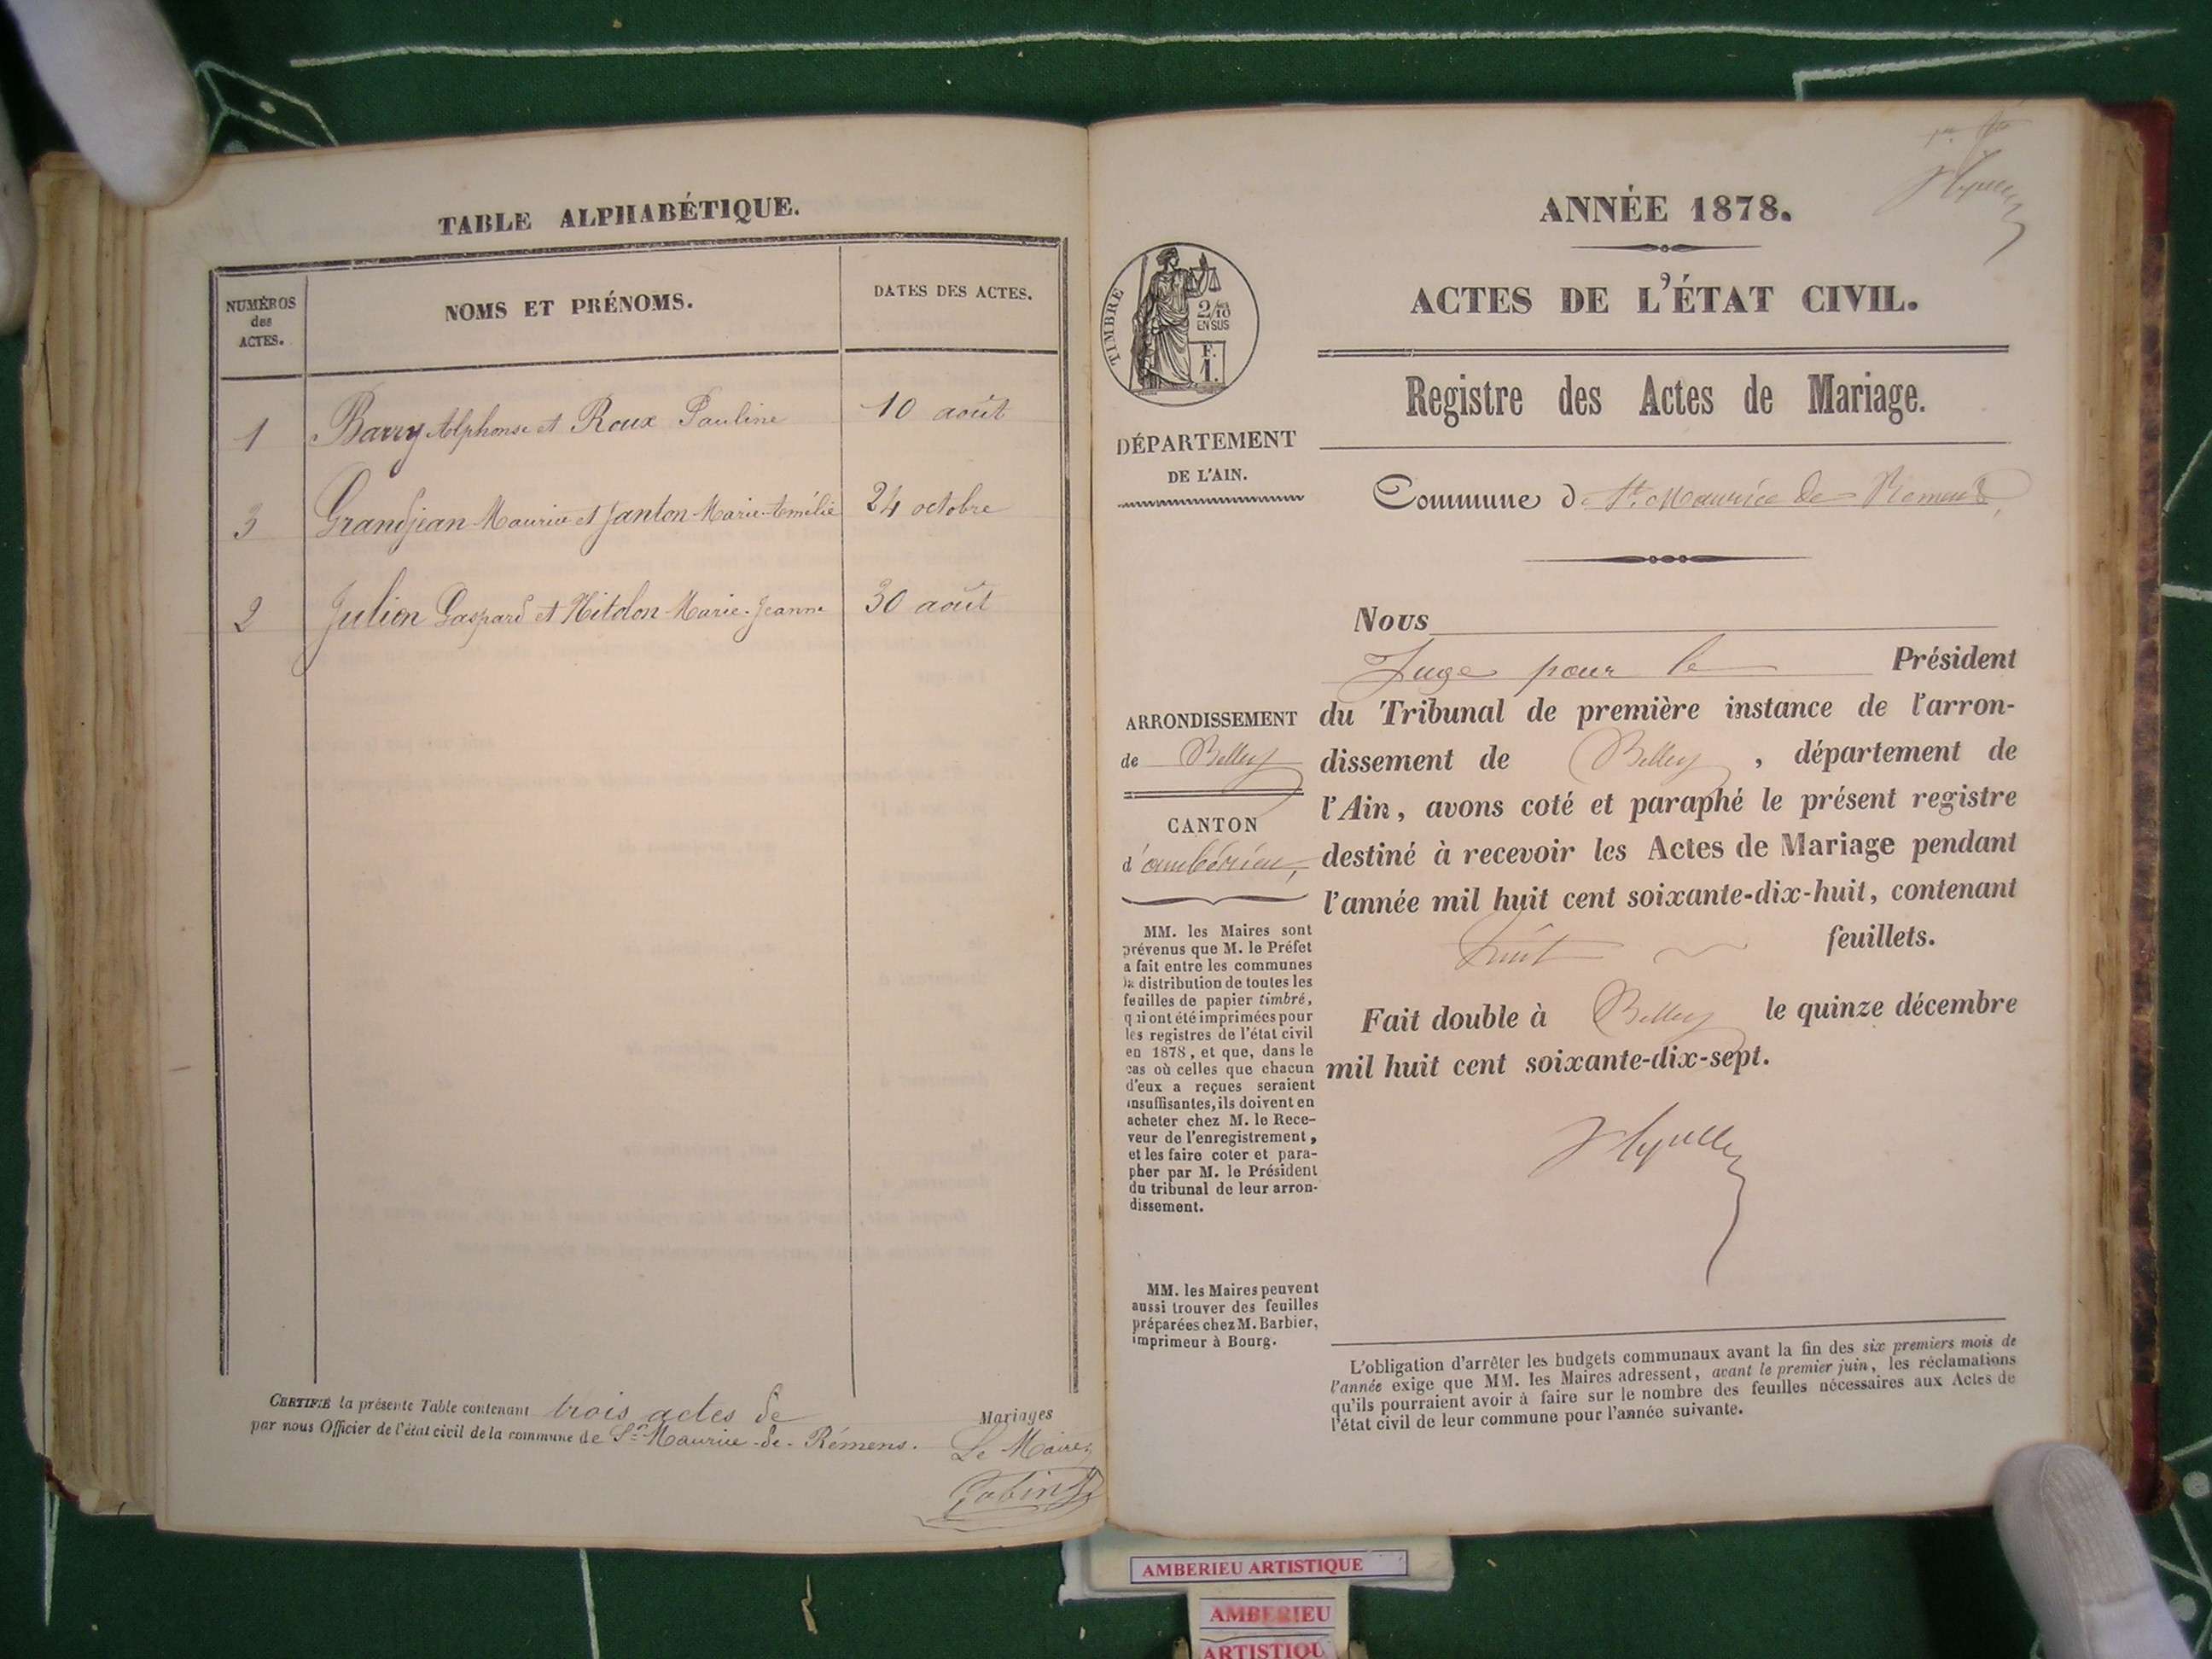 TABLE ALPHABÉTIQUE.
NUMÉROS
des
ACTES.
NOMS ET PRÉNOMS.
DATES DES ACTES.
1 Barry Alphonse et Roux Pauline 10 août
3 Grandjean Maurice et Janton Marie-Amélie 24 octobre
2 Julien Gaspard et Hitolon Marie-Jeanne 30 août
CERTIFIÉ la présente Table contenant trois actes de Mariages
par nous Officier de l'état civil de la commune de St-Maurice-de-Rémens. Le Maire,
ANNÉE 1878.
ACTES DE L'ÉTAT CIVIL.
TIMBRE
2/10
EN SUS
F.
1.
Registre des Actes de Mariage.
DÉPARTEMENT
DE L'AIN.
Commune de St Maurice de Remens,
Nous
Juge pour le Président
ARRONDISSEMENT
de Belley
CANTON
d'ambérieu,
du Tribunal de première instance de l'arron-
dissement de Belley, département de
l'Ain, avons coté et paraphé le présent registre
destiné à recevoir les Actes de Mariage pendant
l'année mil huit cent soixante-dix-huit, contenant
huit feuillets.
Fait double à Belley le quinze décembre
mil huit cent soixante-dix-sept.
MM. les Maires sont
prévenus que M. le Préfet
a fait entre les communes
la distribution de toutes les
feuilles de papier timbré,
qui ont été imprimées pour
les registres de l'état civil
en 1878, et que, dans le
cas où celles que chacun
d'eux a reçues seraient
insuffisantes, ils doivent en
acheter chez M. le Rece-
veur de l'enregistrement,
et les faire coter et para-
pher par M. le Président
du tribunal de leur arron-
dissement.
MM. les Maires peuvent
aussi trouver des feuilles
préparées chez M. Barbier,
imprimeur à Bourg.
L'obligation d'arrêter les budgets communaux avant la fin des six premiers mois de
l'année exige que MM. les Maires adressent, avant le premier juin, les réclamations
qu'ils pourraient avoir à faire sur le nombre des feuilles nécessaires aux Actes de
l'état civil de leur commune pour l'année suivante.
AMBERIEU ARTISTIQUE
AMBERIEU
ARTISTIQU